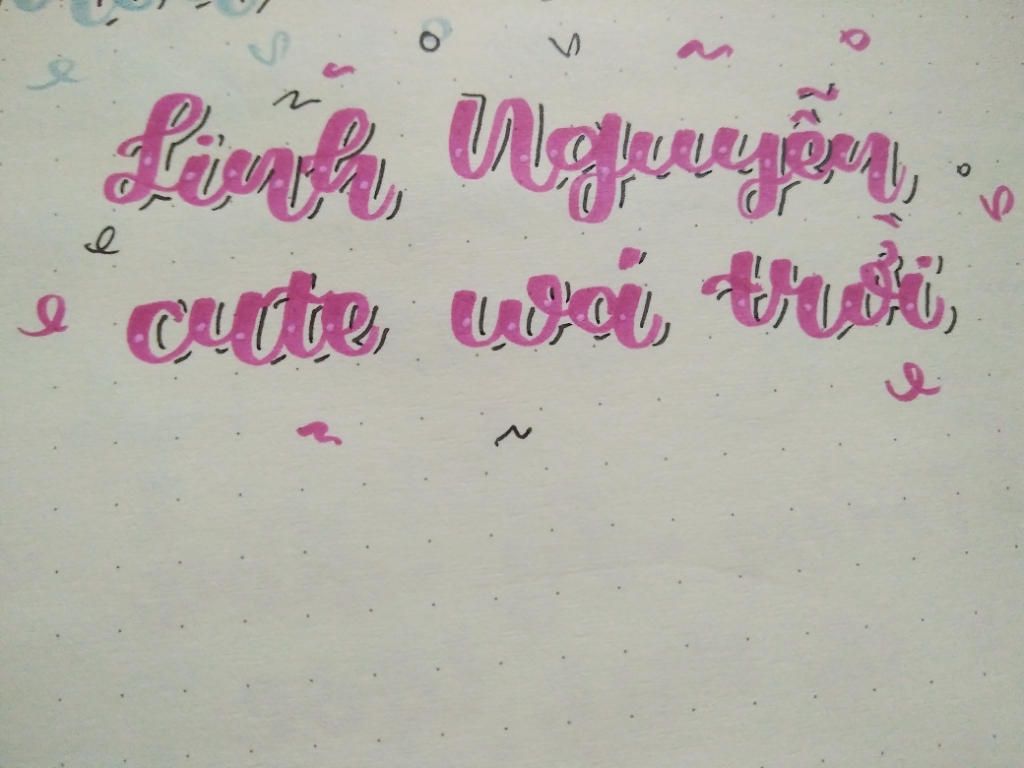 Linh Nguyễn
cute wá trời